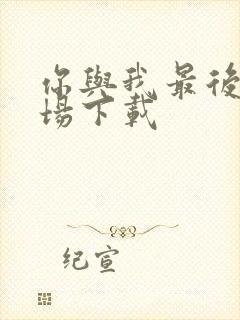 你與我最後
場下載
纪宣